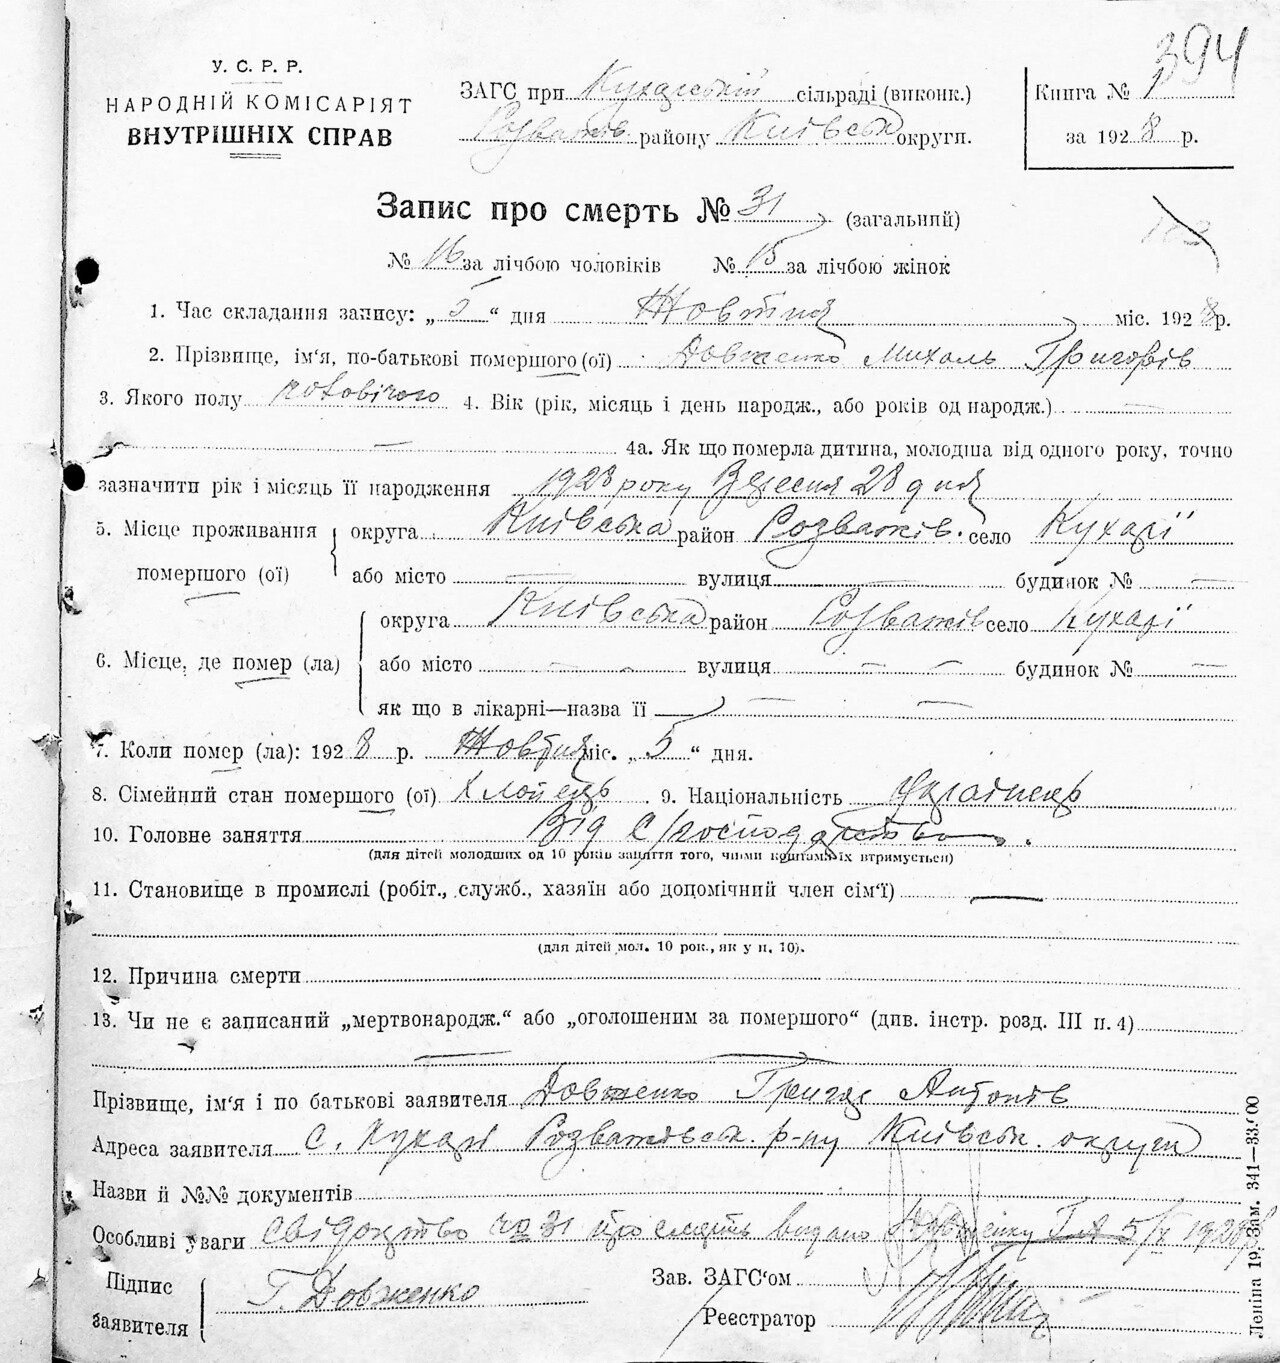 394
У. С. Р. Р.
НАРОДНІЙ КОМІСАРІЯТ
ВНУТРІШНІХ СПРАВ
ЗАГС при Кухарській сільраді (виконк.)
Розважів. району Київськ округи.
Книга № 1
за 1928 р.
Запис про смерть № 31 (загальний)
№ 16 за лічбою чоловіків № 15 за лічбою жінок
1. Час складання запису: „ 5 “ дня Жовтня міс. 1928 р.
2. Прізвище, ім'я, по-батькові помершого (ої) Довженко Михаль Григорів
3. Якого полу чоловічого 4. Вік (рік, місяць і день народж., або років од народж.) —
— 4а. Як що померла дитина, молодша від одного року, точно
зазначити рік і місяць її народження 1928 року Вересня 28 дня
5. Місце проживання помершого (ої) округа Київська район Розважів. село Кухарі
або місто — вулиця — будинок № —
6. Місце, де помер (ла) округа Київська район Розважів село Кухарі
або місто — вулиця — будинок № —
як що в лікарні—назва її —
7. Коли помер (ла): 1928 р. Жовтня міс. „ 5 “ дня.
8. Сімейний стан помершого (ої) Хлопець. 9. Національність Українець
10. Головне заняття Від С/господарства.
(для дітей молодших од 10 років заняття того, чиїми коштами їх втримується)
11. Становище в промислі (робіт., служб., хазяїн або допомічний член сім'ї) —
(для дітей мол. 10 рок., як у п. 10).
12. Причина смерти
13. Чи не є записаний „мертвонародж.“ або „оголошеним за помершого“ (див. інстр. розд. III п. 4)
— —
Прізвище, ім'я і по батькові заявителя Довженко Григор Антонів
Адреса заявителя С. Кухарі Розважівськ. р-ну Київськ. округи
Назви й №№ документів
Особливі уваги Свідоцтво № 31 про смерть видано Довженку Г. А 5/X 1928 р
Підпис заявителя Г. Довженко
Зав. ЗАГС'ом
Реестратор
Леніна 19. Зам. 341—33.000